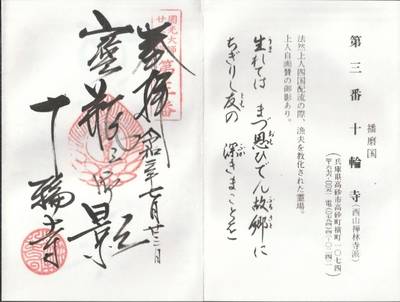 播磨国
第三番 十輪寺(西山禅林寺派)
兵庫県高砂市高砂町横町一〇七四
法然上人四国配流の際、漁夫を教化された霊場。
上人自画賛の御影あり。
生れては まづ思ひでん 故郷に
ちぎりし友の 深きまことを
圓光大師
第三番
奉拝
七月
御影
十輪寺